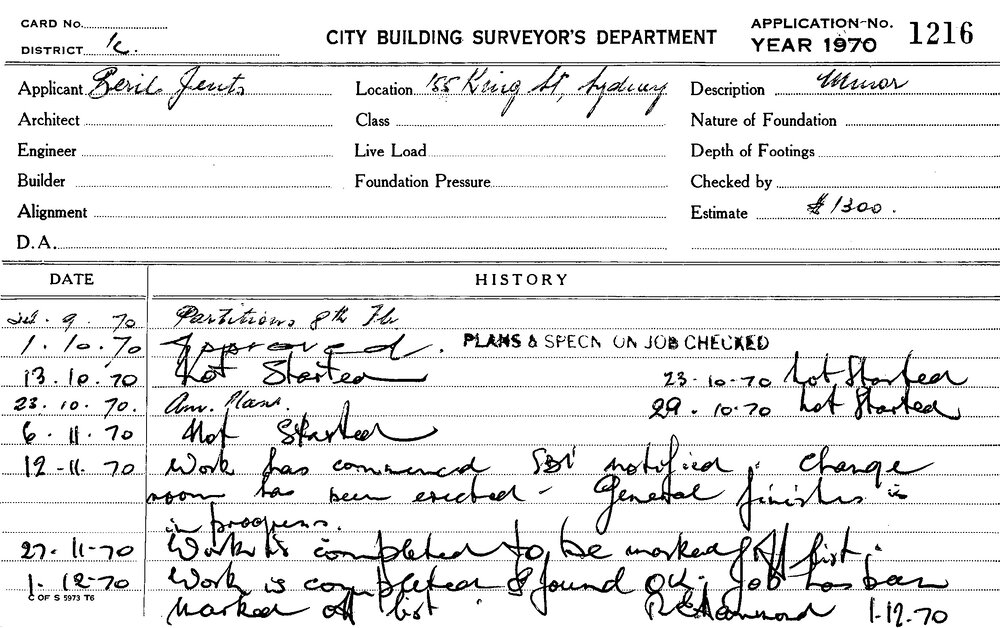 CARD No.
DISTRICT
CITY BUILDING SURVEYOR'S DEPARTMENT
APPLICATION No. 1216
YEAR 1970
Applicant Beril Jents
Location 155 King St, Sydney
Description Minor
Architect
Class
Nature of Foundation
Engineer
Live Load
Depth of Footings
Builder
Foundation Pressure
Checked by
Alignment
Estimate $1300.
D.A.
DATE HISTORY
9.70 Partitions 8th Flr
1.10.70 Approved. PLANS & SPECN ON JOB CHECKED
13.10.70 Not Started 23-10-70 Not Started
23.10.70. Am. Plans. 29.10.70 Not Started
6.11.70 Not Started
12-11.70 Work has commenced notified. Change
room has been erected - General finishes is
in progress.
27.11-70 Work is completed to be marked off list.
1.12-70 Work is completed & found OK. Job has been
C OF S 5973 T6
Marked off list. 1-12.70